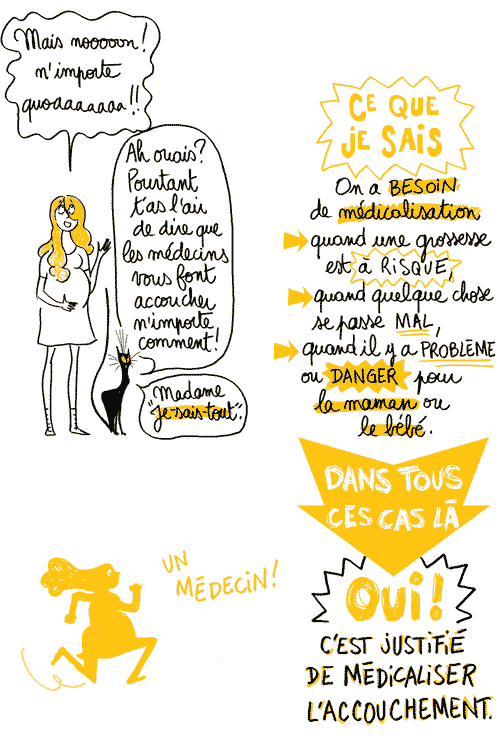 Mais nooooon!
n'importe
quoaaaaaaa!!
Ah ouais?
Pourtant
t'as l'air
de dire que
les médecins
vous font
accoucher
n'importe
comment!
Madame
"je-sais-tout".
CE QUE
JE SAIS
On a BESOIN
de médicalisation
quand une grossesse
est à RISQUE,
quand quelque chose
se passe MAL,
quand il y a PROBLÈME
ou DANGER pour
la maman ou
le bébé.
DANS TOUS
CES CAS LÀ
UN
MÉDECIN!
OUI!
C'EST JUSTIFIÉ
DE MÉDICALISER
L'ACCOUCHEMENT.